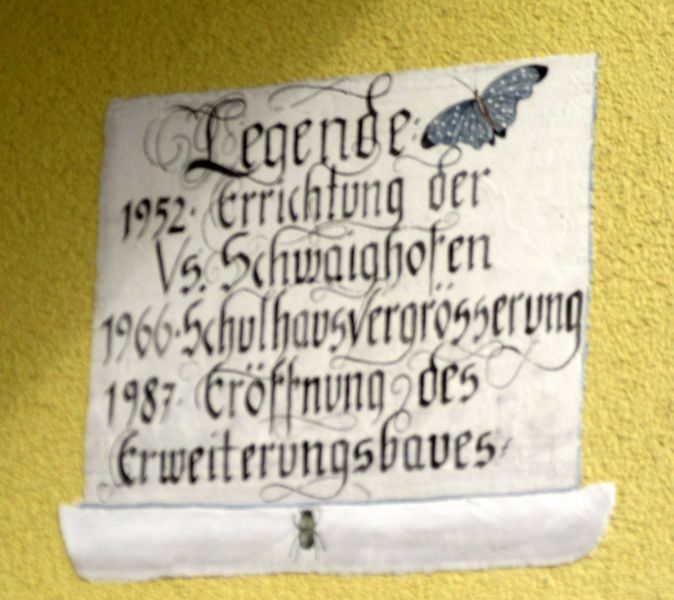 Legende:
1952· Errichtung der
Vs. Schwaighofen
1966·Schulhausvergrösserung
1987· Eröffnung des
Erweiterungsbaues·